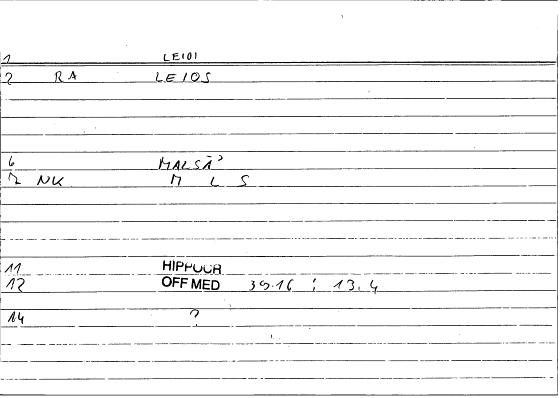 1 LEIOI
2 RA LEIOS
6 MALSĀ³
12 NK M L S
11 HIPPOCR
12 OFF MED 39.16 ; 13.4
14 ?